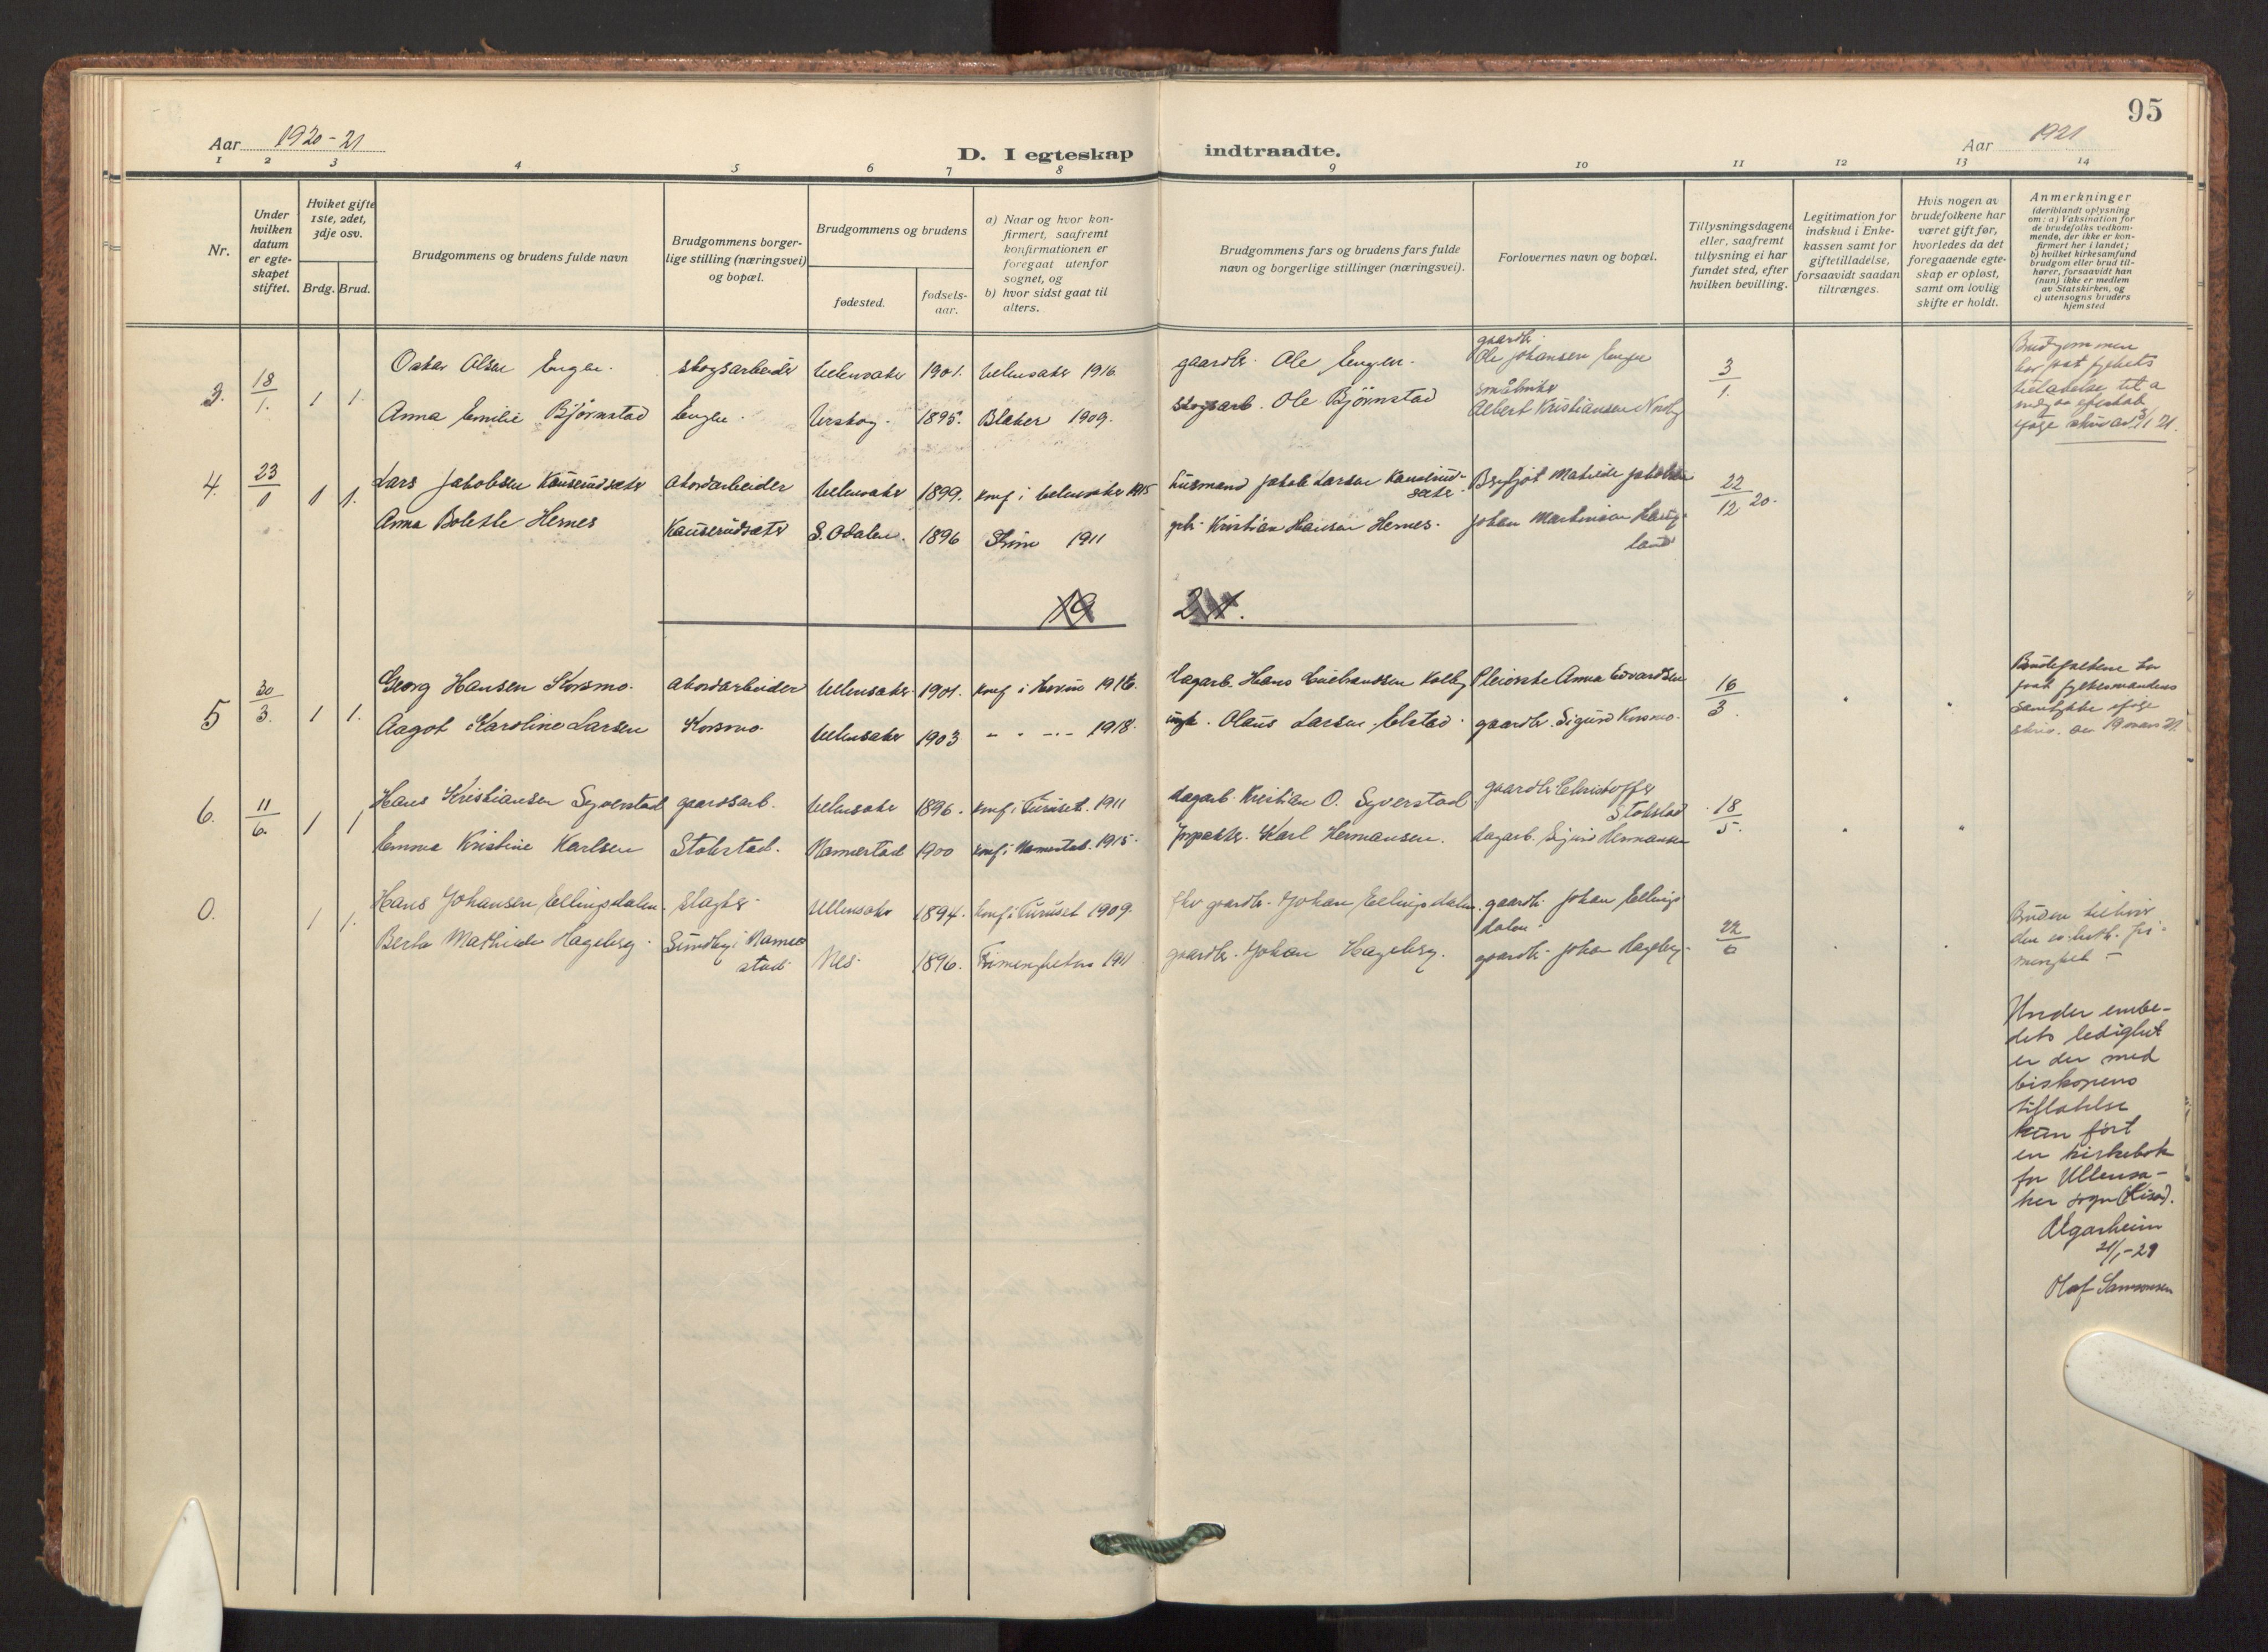 95
Aar 1920-21
D. I egteskap indtraadte.
Aar 1921
1 2 3 4 5 6 7 8 9 10 11 12 13 14
Nr.
Under hvilken datum er egte- skapet stiftet.
Hviket gifte 1ste, 2det, 3dje osv.
Brdg. Brud.
Brudgommens og brudens fulde navn
Brudgommens borger- lige stilling (næringsvei) og bopæl.
Brudgommens og brudens
fødested.
fødsels- aar.
a) Naar og hvor kon- firmert, saafremt konfirmationen er foregaat utenfor sognet, og
b) hvor sidst gaat til alters.
Brudgommens fars og brudens fars fulde navn og borgerlige stillinger (næringsvei).
Forlovernes navn og bopæl.
Tillysningsdagene eller, saafremt tillysning ei har fundet sted, efter hvilken bevilling.
Legitimation for indskud i Enke- kassen samt for giftetilladelse, forsaavidt saadan tiltrænges.
Hvis nogen av brudefolkene har været gift før, hvorledes da det foregaaende egte- skap er opløst, samt om lovlig skifte er holdt.
Anmerkninger
(deriblandt oplysning om: a) Vaksination for de brudefolks vedkom- mende, der ikke er kon- firmert her i landet; b) hvilket kirkesamfund brudgom eller brud til- hører, forsaavidt han (hun) ikke er medlem av Statskirken, og c) utensogns bruders hjemsted
3. 18/1. 1 1 Oskar Olsen Engen. skogsarbeider Ullensaker 1901. Ullensaker 1916. gaardbr. Ole Engen. gaardbr. Ole Johansen Engen 3/1.
Anna Emilie Bjørnstad Engen. Urskog. 1895. Blaker 1909. skogsarb. Ole Bjørnstad småbruker Albert Kristiansen Nordby
4. 23/1 1 1. Lars Jakobsen Kauserudsæter akordarbeider Ullensaker 1899. konf i Ullensaker 1915 husmand Jakob Larsen Kauserud- sæter. Matilde Jakobsen 22/12 20.
Anna Bolette Hernes Kauserudsæter S. Odalen. 1896 1911 Kristian Hansen Hernes. Johan Martinsen
5 30/3. 1 1. Georg Hansen Korsmo. akordarbeider Ullensaker 1901. konf i Hovin 1916. dagarb. Hans Kolby Pleierske Anna Edvardsen 16/3.
Aagot Karoline Larsen Korsmo. Ullensaker 1903 - " - - 1918. Olaus Larsen Elstad. gaardbr. Sigurd Korsmo.
Brudefolkene har faat fylkesmandens samtykke ifølge skriv. av 19 mars 21.
6. 11/6. 1 1 Hans Kristiansen Syverstad gaardsarb. Ullensaker 1896. konf i Furuset 1911 dagarb. Kristian O. Syverstad gaardbr. Christoffer Stokstad 18/5.
Emma Kristine Karlsen Stokstad. Nannestad 1900 konf i Nannestad. 1915. forpakter. Karl Hermansen. dagarb. Sigurd Hermansen
0. 1 1. Hans Johansen Ellingsdalen. slagter. Ullensaker 1894. konf i Furuset 1909. fhv gaardbr. Johan Ellingsdalen. gaardbr. Johan Ellings- dalen. 22/6
Berta Mathilde Hageberg. Sundby i Nanne- stad. Nes. 1896. Frimenigheten 1911 gaardbr. Johan Hageberg. gaardbr. Johan Hageberg.
Bruden tilhører den ev. luth. fri- menighet.
Under embe-
dets ledighet
er der med
biskopens
tillatelse
kun ført
en kirkebok
for Ullensa-
ker sogn (Kisa).
Algarheim
21/1-29
Olaf Samsonsen